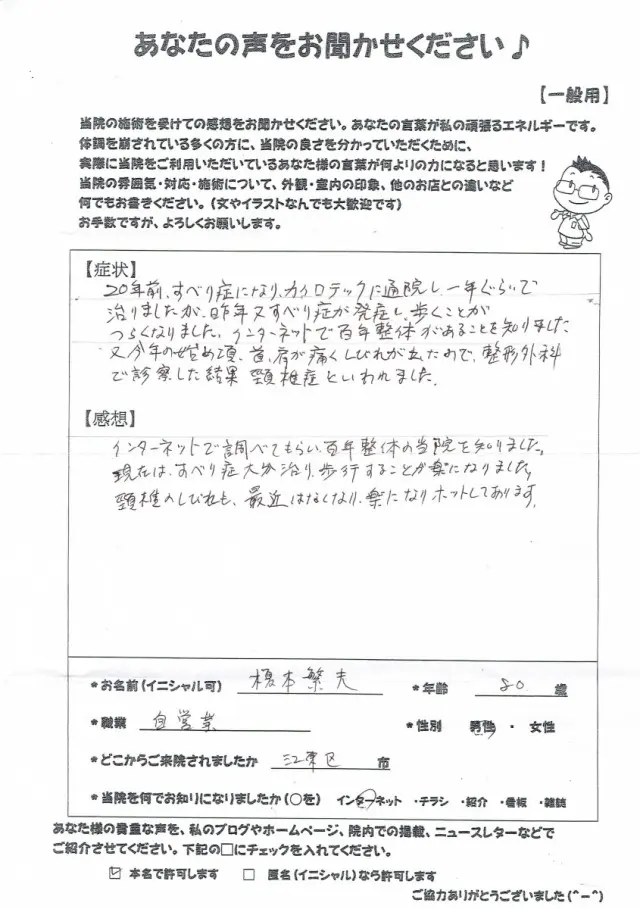 あなたの声をお聞かせください♪
【一般用】
当院の施術を受けての感想をお聞かせください。あなたの言葉が私の頑張るエネルギーです。
体調を崩されている多くの方に、当院の良さを分かっていただくために、
実際に当院をご利用いただいているあなた様の言葉が何よりの力になると思います！
当院の雰囲気・対応・施術について、外観・室内の印象、他のお店との違いなど
何でもお書きください。（文やイラストなんでも大歓迎です）
お手数ですが、よろしくお願いします。
【症状】
20年前、すべり症になり、カイロテックに通院し、一年ぐらいで
治りましたが、昨年又すべり症が発症し、歩くことが
つらくなりました。インターネットで百年整体があることを知りました
又今年の始め頃、首、肩が痛くしびれが出たので、整形外科
で診察した結果 頸椎症といわれました。
【感想】
インターネットで調べてもらい、百年整体の当院を知りました。
現在は、すべり症大分治り、歩行することが楽になりました。
頸椎のしびれも、最近はなくなり、楽になりホットしております。
*お名前（イニシャル可） 榎本繁夫 *年齢 80 歳
*職業 自営業 *性別 男性 ・ 女性
*どこからご来院されましたか 江東区 市
*当院を何でお知りになりましたか（○を） インターネット ・チラシ ・紹介 ・看板 ・雑誌
あなた様の貴重な声を、私のブログやホームページ、院内での掲載、ニュースレターなどで
ご紹介させてください。下記の□にチェックを入れてください。
☑ 本名で許可します □ 匿名（イニシャル）なら許可します
ご協力ありがとうございました(^-^)